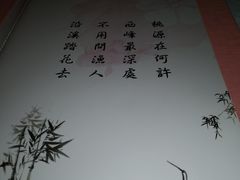 桃源在何許
西峰最深處
不用問漁人
沿溪踏花去